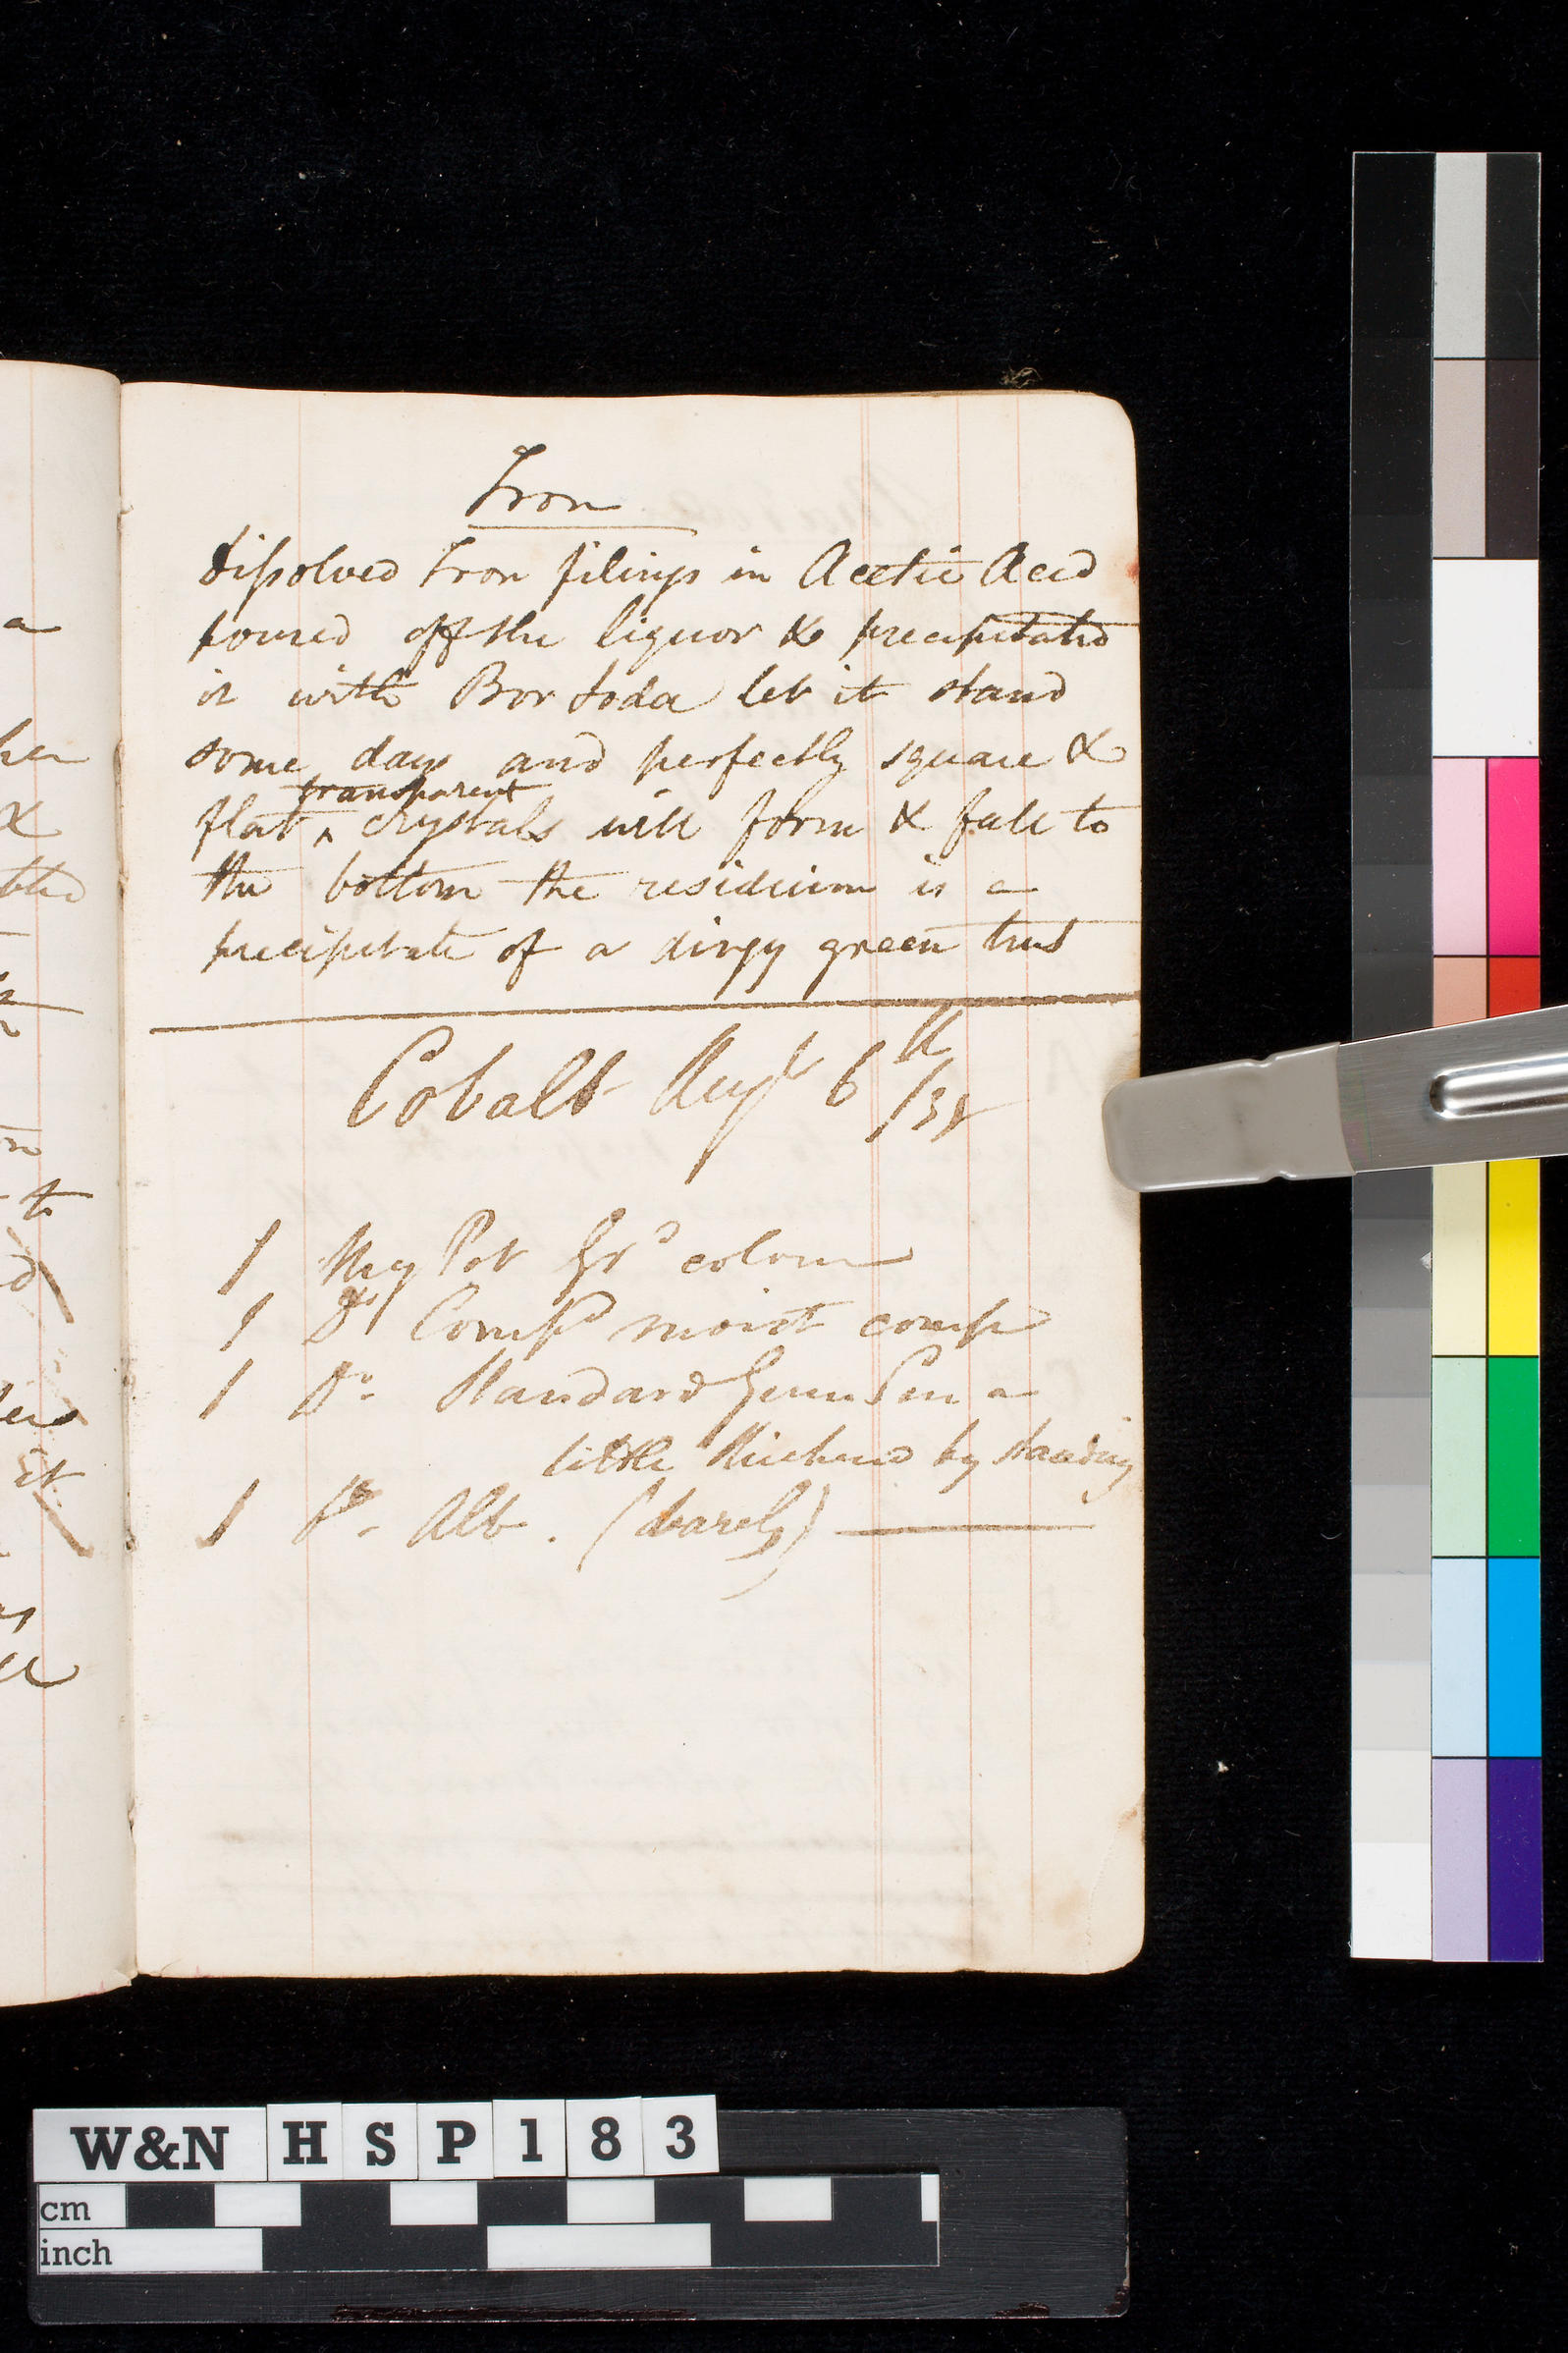 Iron
dissolved Iron filings in Acetic Acid
poured off the liquor & precipitated
it with Bor Soda let it stand
some days and perfectly square &
transparent
flat ^ crystals will form & fall to
the bottom the residuum is a
precipitate of a dingy green
Cobalt Augt 6th /38
1 Mug Pot Grd colour
1 Do Compd moist comp
1 Do Standard Gum Sen a
little thickened by standing
1 Do Alb. (barely)
a
her
&
to
it
W&N HSP183
cm
inch